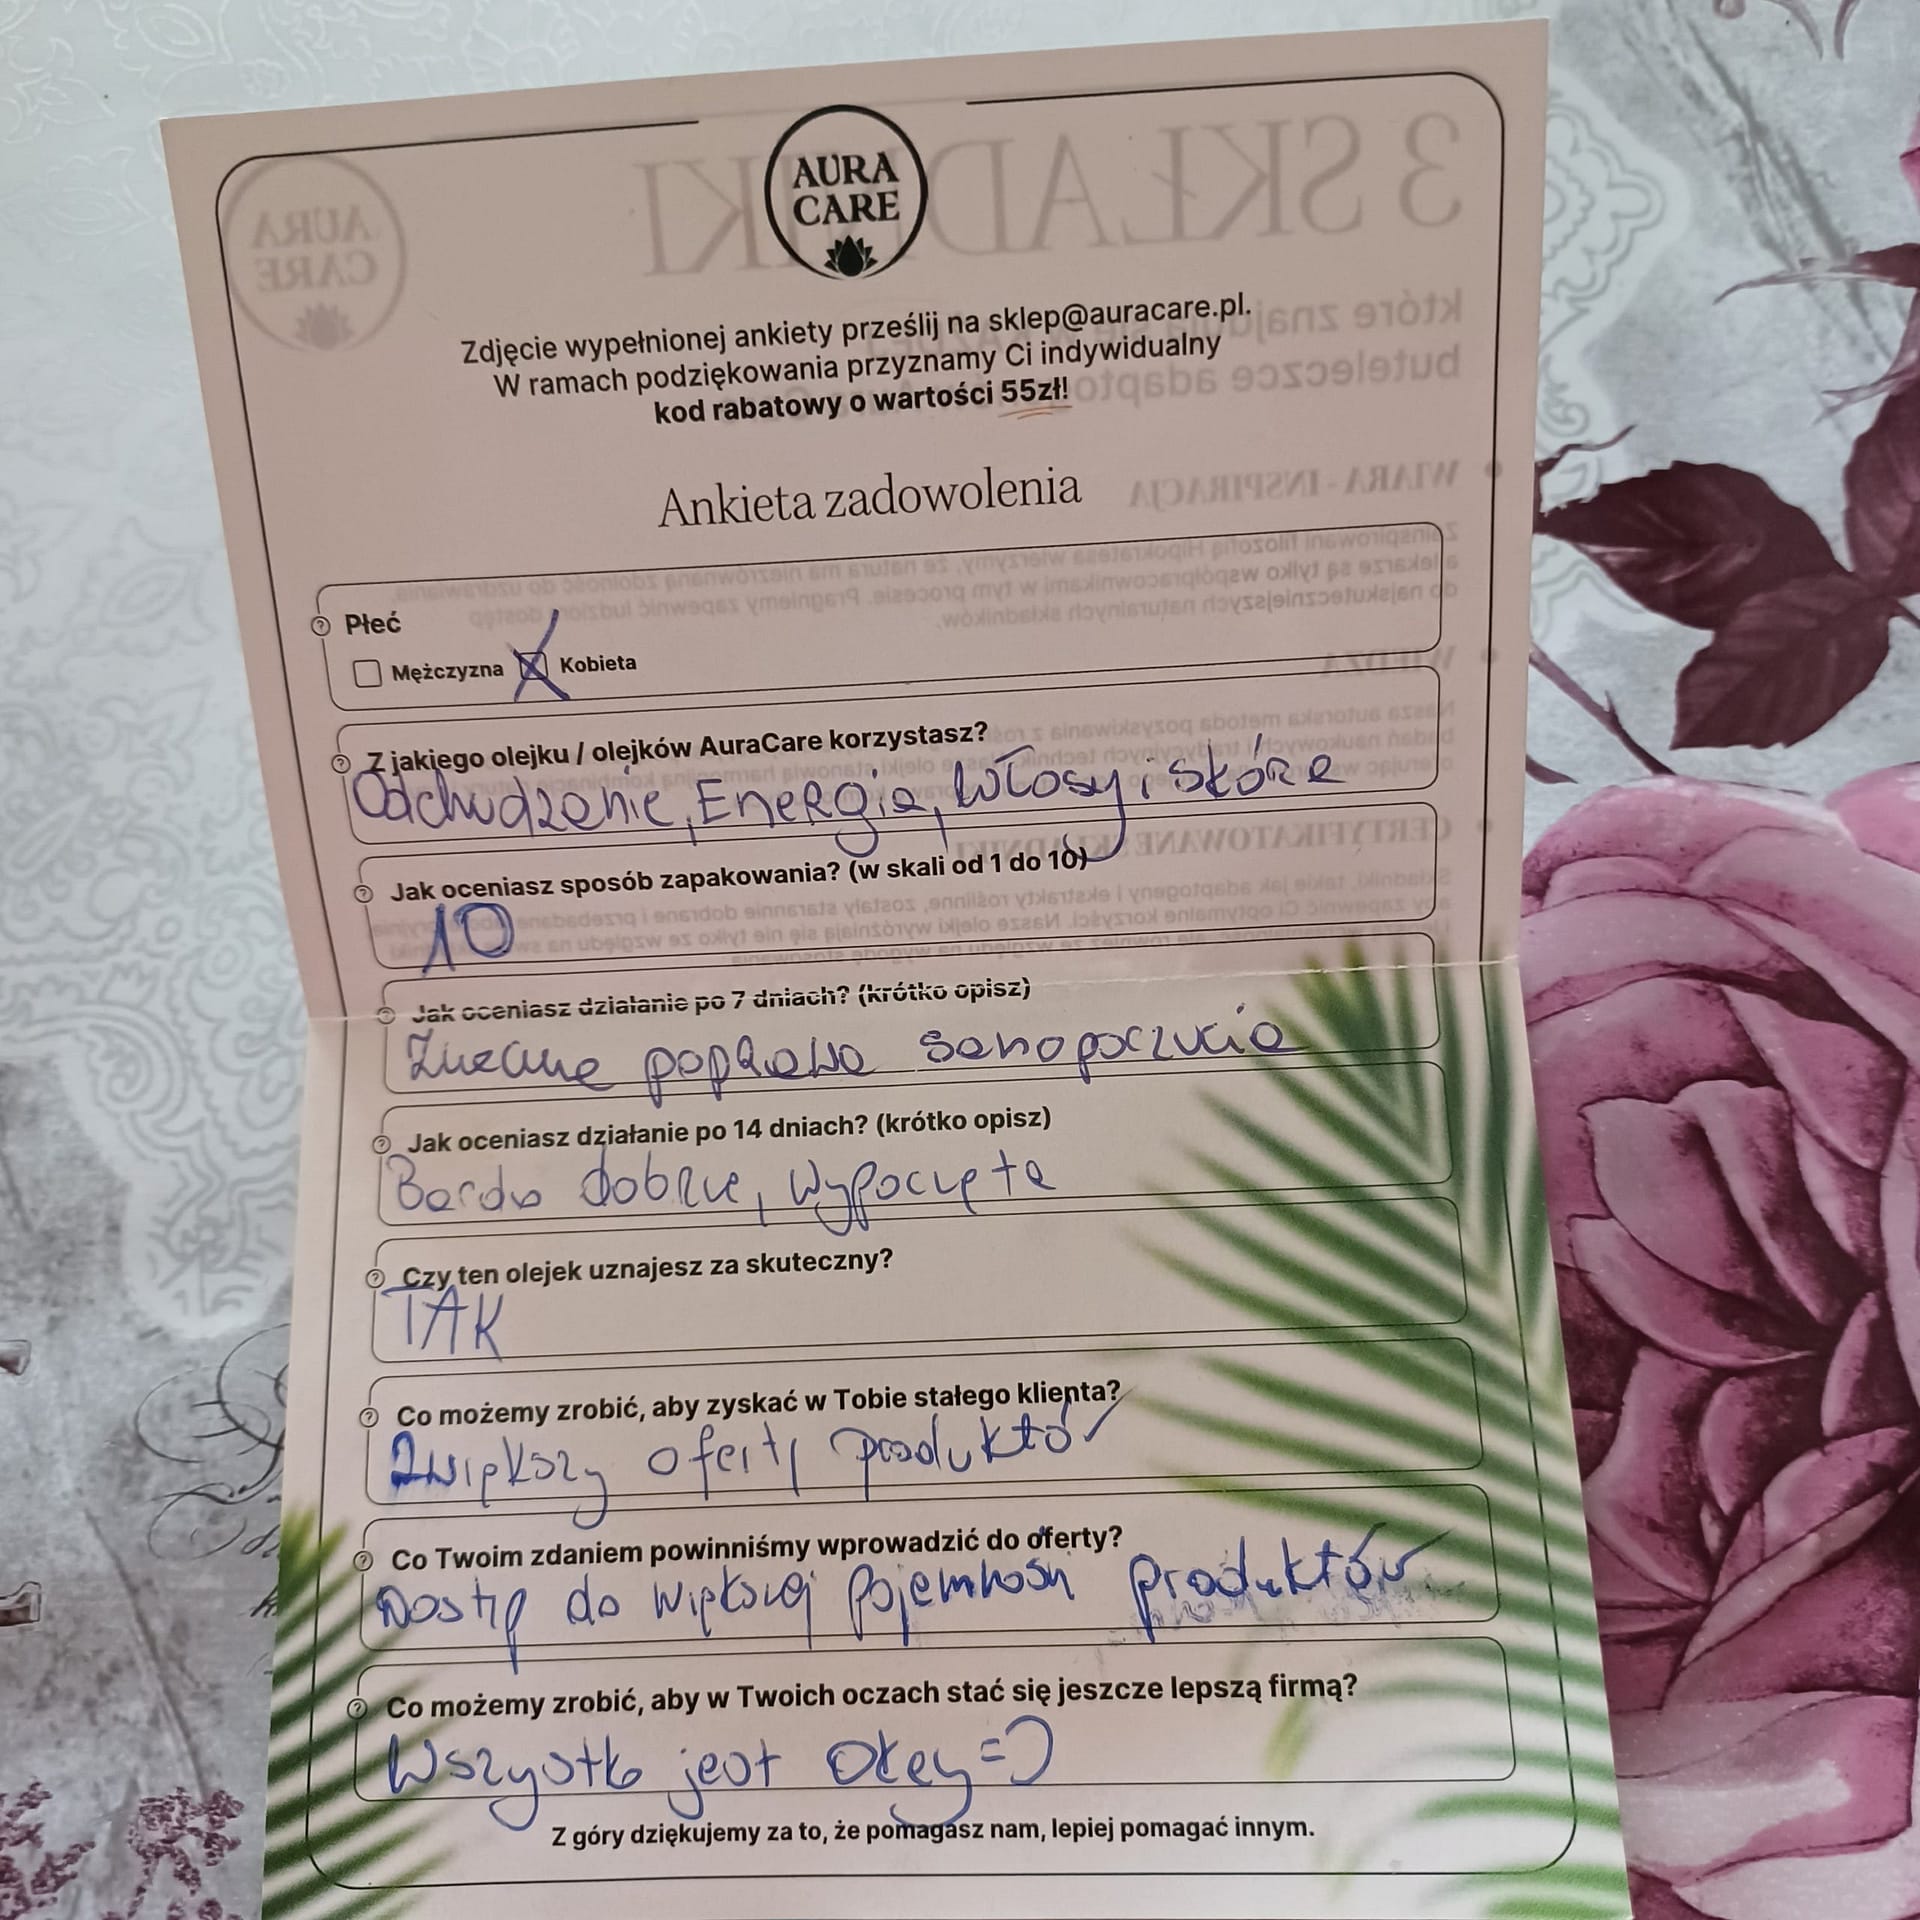 AURA
CARE
Zdjęcie wypełnionej ankiety prześlij na sklep@auracare.pl.
W ramach podziękowania przyznamy Ci indywidualny
kod rabatowy o wartości 55zł!
Ankieta zadowolenia
Płeć
Mężczyzna X Kobieta
Z jakiego olejku / olejków AuraCare korzystasz?
Odchudzanie, Energia, Włosy i skóra
Jak oceniasz sposób zapakowania? (w skali od 1 do 10)
10
Jak oceniasz działanie po 7 dniach? (krótko opisz)
Znaczne poprawa samopoczucia
Jak oceniasz działanie po 14 dniach? (krótko opisz)
Bardo dobrze, wypoczęta
Czy ten olejek uznajesz za skuteczny?
TAK
Co możemy zrobić, aby zyskać w Tobie stałego klienta?
Zwiększy oferty produktów
Co Twoim zdaniem powinniśmy wprowadzić do oferty?
Dostęp do większej pojemności produktów
Co możemy zrobić, aby w Twoich oczach stać się jeszcze lepszą firmą?
Wszystko jest okey =)
Z góry dziękujemy za to, że pomagasz nam, lepiej pomagać innym.